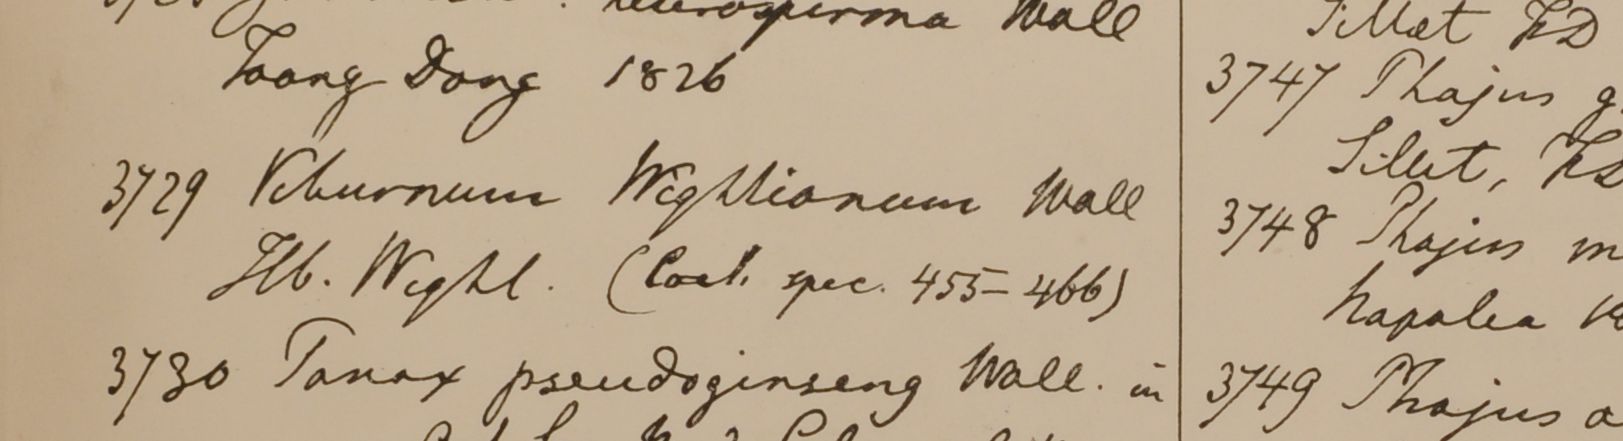 heterosperma Wall
Toong Dong 1826
3729 Viburnum Wightianum Wall
Hb. Wight. (Coel. spec. 455-466)
3730 Panax pseudoginseng Wall. in
Sillet FD
3747 Phajus g
Sillet, FD
3748 Phajus m
Napalia
3749 Phajus a